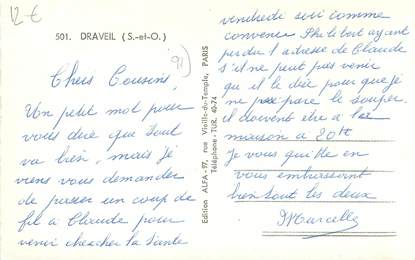 12€
501. DRAVEIL (S.-et-O.)
91
Chers Cousins,
Un petit mot pour
vous dire que tout
va bien, mais je
viens vous demander
de passer un coup de
fil à Claude pour
venir chercher la Tante
Edition ALFA - 97, rue Vieille-du-Temple, PARIS
Téléphone - TUR. 40-74
vendredi soir comme
convenu Philibert ayant
perdu l'adresse de Claude
s'il ne peut pas venir
qu'il le dise pour que je
ne pare le souper.
il doivent etre à la
maison à 20H
Je vous quitte en
vous embrassant
bien tout les deux
Marcelle